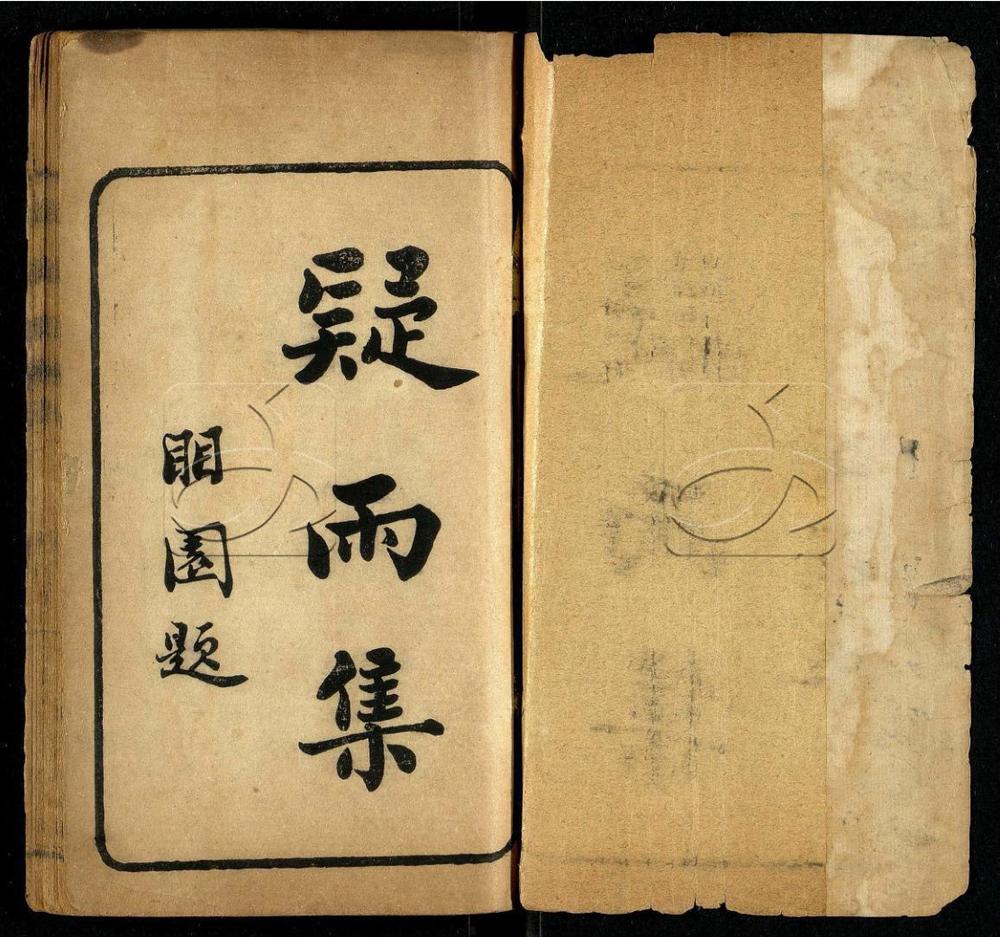 疑雨集
園題